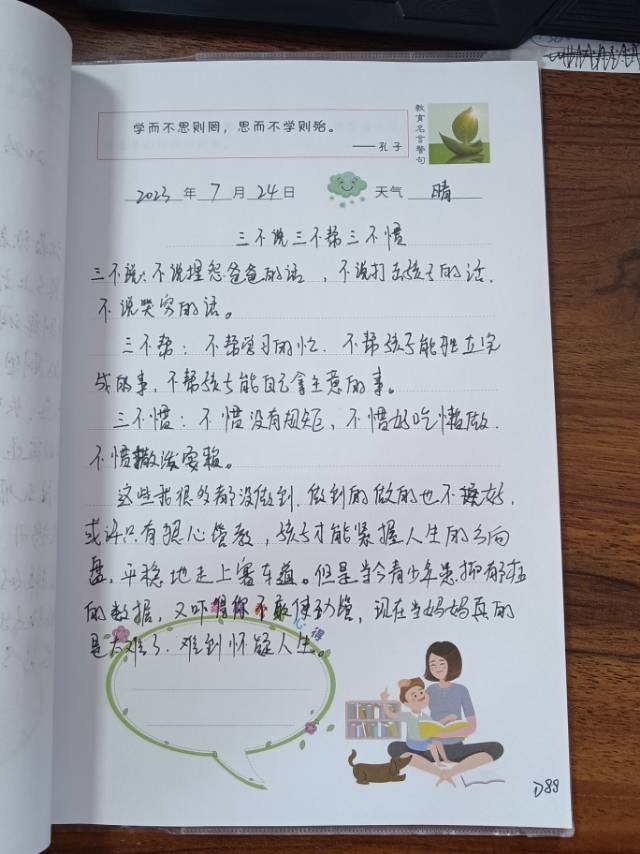 学而不思则罔，思而不学则殆。
——孔子
教育名言警句
2023 年 7 月 24 日 天气 晴
三不说三不帮三不惯
三不说：不说埋怨爸爸的话，不说打击孩子的话，
不说哭穷的话。
三不帮：不帮学习的忙，不帮孩子能独立完
成的事，不帮孩子能自己拿主意的事。
三不惯：不惯没有规矩，不惯好吃懒做，
不惯撒泼耍赖。
这些我很多都没做到，做到的做的也不够好，
或许只有狠心管教，孩子才能紧握人生的方向
盘，平稳地走上赛车道。但是当今青少年患抑郁症
的数据，又吓得你不敢使劲管，现在当妈妈真的
是太难了，难到怀疑人生。
心得
D88